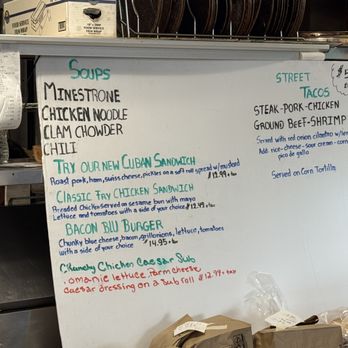 SOUPS
MINESTRONE
CHICKEN NOODLE
CLAM CHOWDER
CHILI
TRY OUR NEW CUBAN SANDWICH
Roast pork, ham, swiss cheese, pickles on a soft roll spread w/mustard
$12.99 + tax
CLASSIC FRY CHICKEN SANDWICH
Breaded Chicken served on sesame bun with mayo
Lettuce and tomatoes with a side of your choice $12.49 + tax
BACON BLU BURGER
Chunky blue cheese, bacon, grill onions, lettuce, tomatoes
with a side of your choice $14.95 + tax
Crunchy Chicken Caesar Sub
romanie lettuce, Parm cheese
Caesar dressing on a sub roll $12.99 + tax
STREET
TACOS
STEAK-PORK-CHICKEN
GROUND BEEF-SHRIMP
Served with red onion cilantro w/
Add rice-cheese-sour cream-
pico de gallo
Served on Corn Tortilla